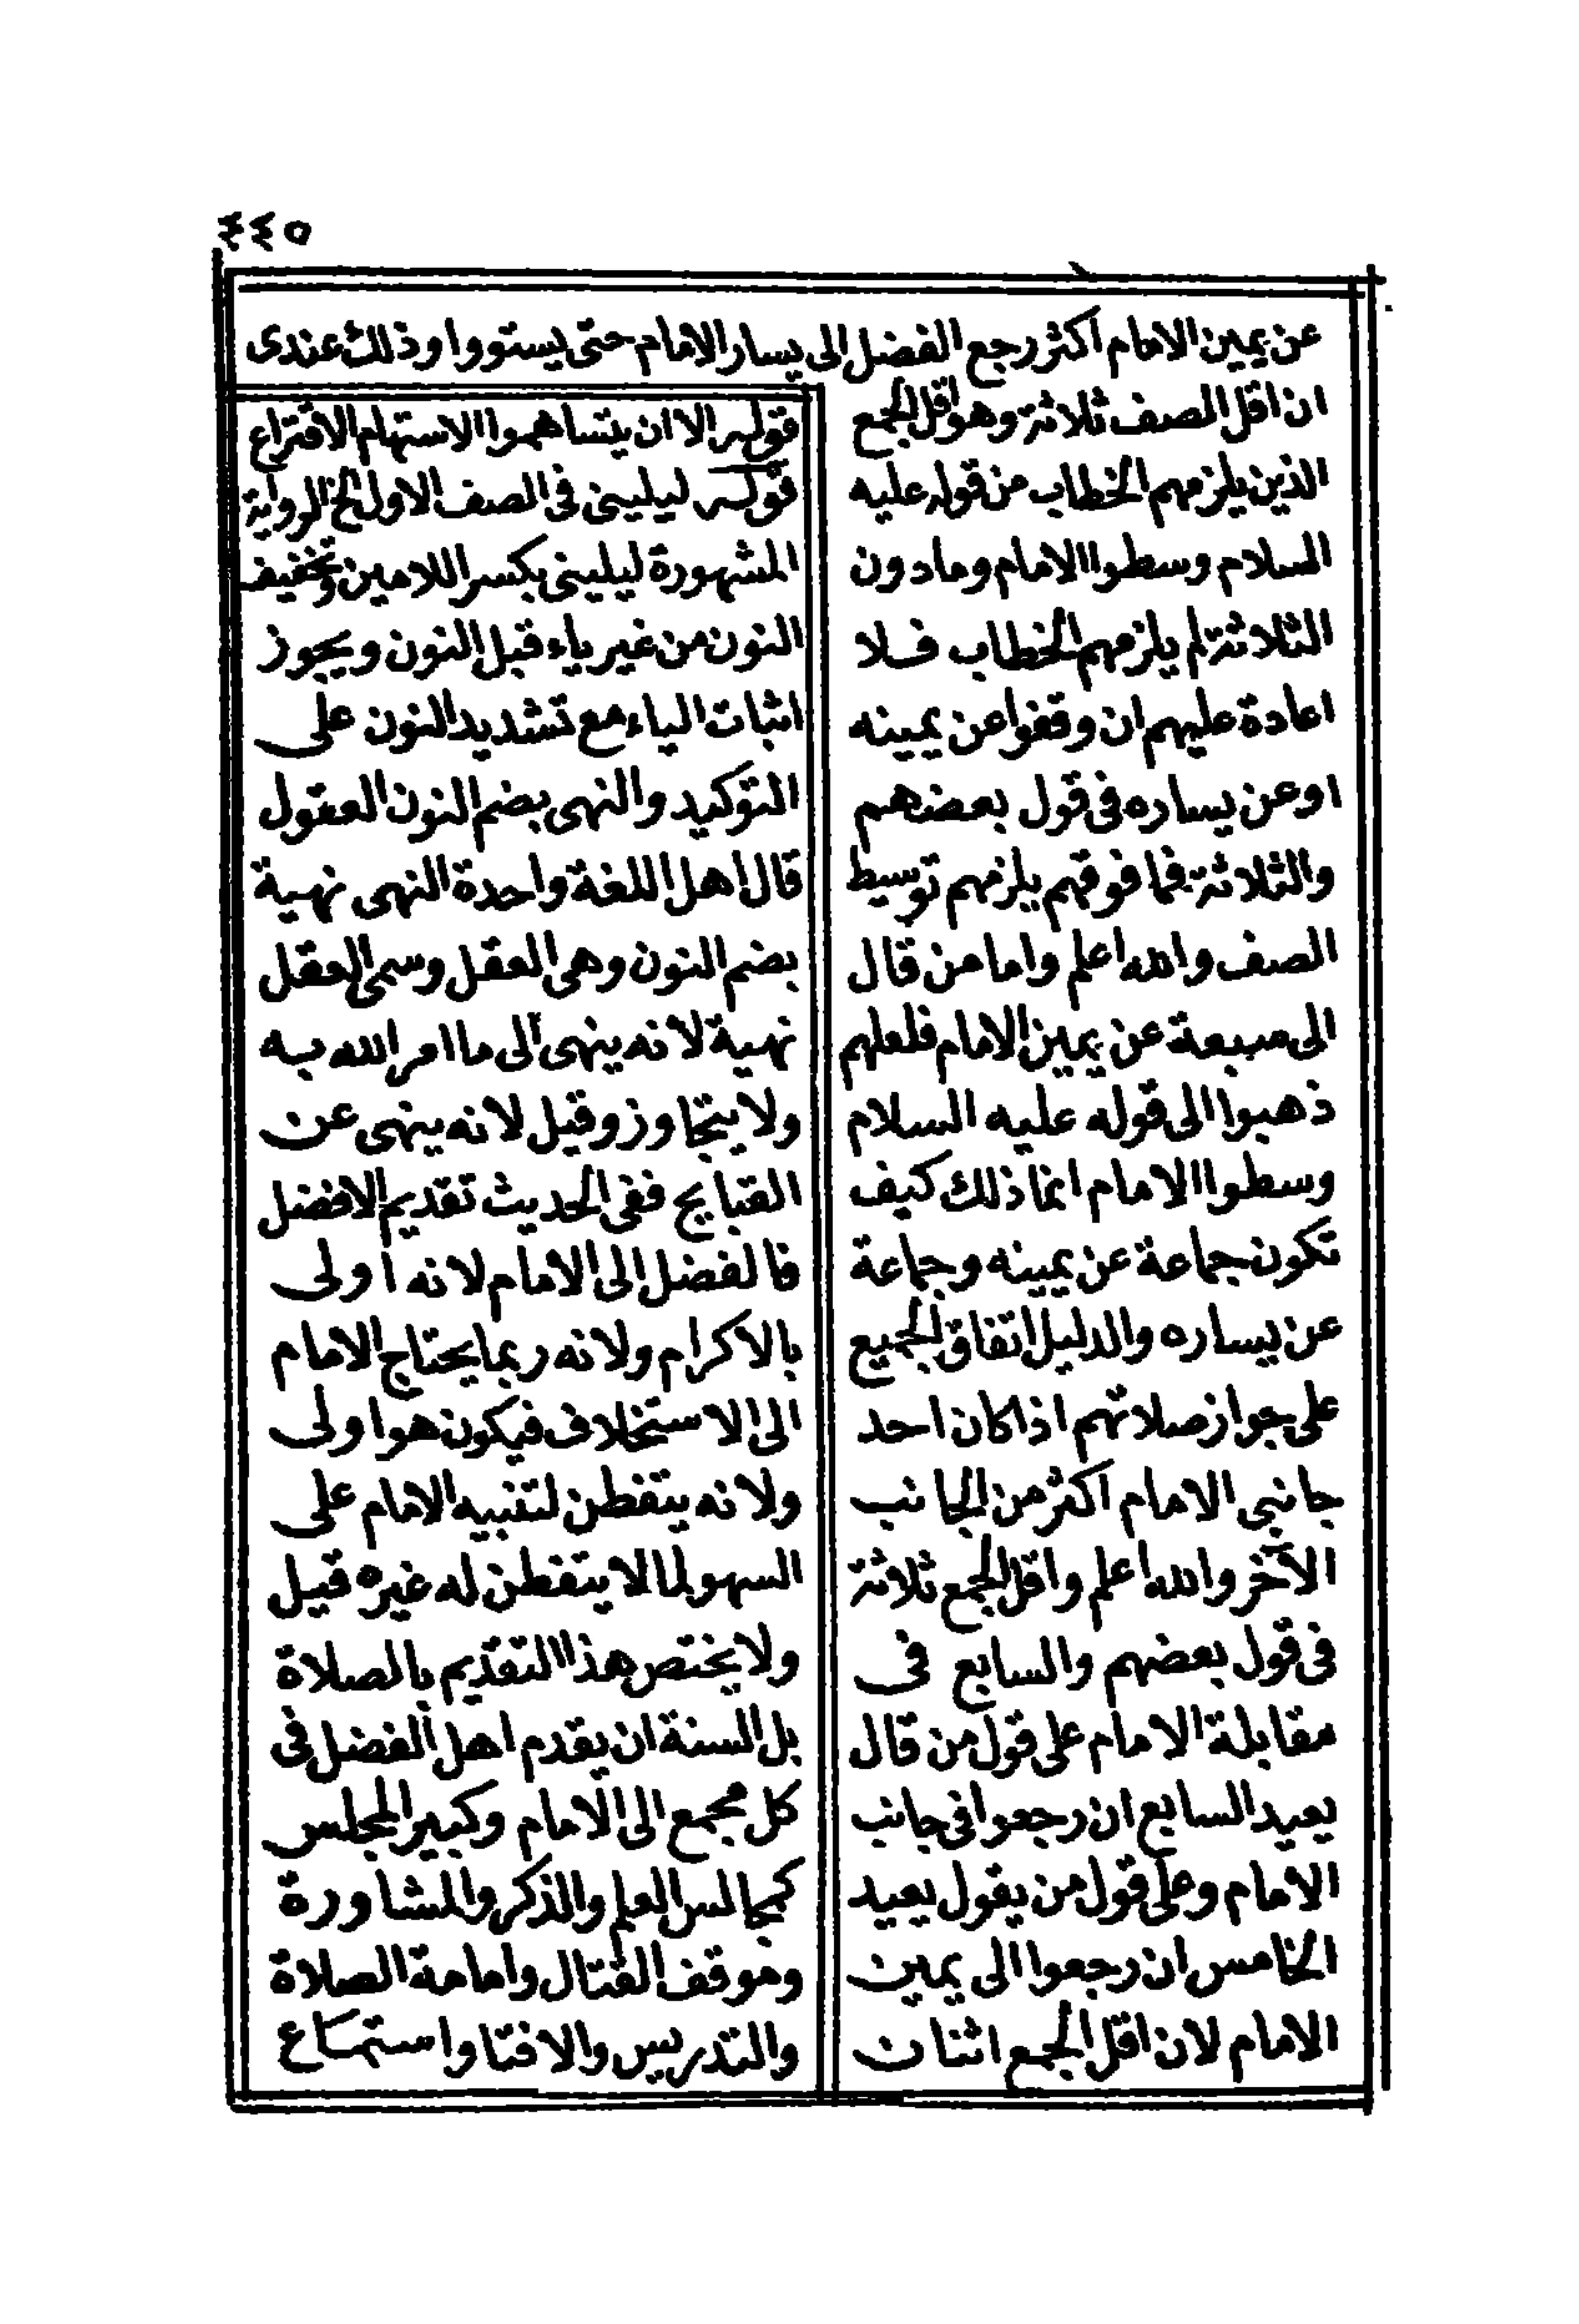 ٤٤٥
عن يمين الامام اكثر رجع الفضل الى يسار الامام حتى يستووا وذلك عندى
ان اقل الصف ثلاثة وهو اقل الجمع
الذين يلزمهم الخطاب من قوله عليه
السلام وسطوا الامام وما دون
الثلاثة لم يلزمهم الخطاب فلا
اعادة عليهم ان وقفوا عن يمينه
او عن يساره فى قول بعضهم
والثلاثة فما فوقهم يلزمهم توسيط
الصف والله اعلم واما من قال
الى سبعة عن يمين الامام فلعلهم
ذهبوا الى قوله عليه السلام
وسطوا الامام انما ذلك كيف
تكون جماعة عن يمينه وجماعة
عن يساره والدليل اتفاق الجميع
على جواز صلاتهم اذا كان احد
جانبى الامام اكثر من الجانب
الآخر والله اعلم واقل الجمع ثلاثة
فى قول بعضهم والسابع فى
مقابلة الامام على قول من قال
يعيد السابع ان رجعوا فى جانب
الامام وعلى قول من يقول يعيد
الخامس ان رجعوا الى يمين
الامام لان اقل الجمع اثنان
قوله الا ان يتساهموا الاستهام الاقتراع
قوله ليلينى فى الصف الاول الخ الرواية
المشهورة ليلينى بكسر اللامين وتخفيف
النون من غير ياء قبل النون ويجوز
اثبات الياء مع تشديد النون على
التوكيد والنهى بضم النون العقول
قال اهل اللغة واحدة النهى نهية
بضم النون وهى العقل وسمى العقل
نهية لانه ينهى الى ما امر الله به
ولا يتجاوز وقيل لانه ينهى عن
القبايح ففى الحديث تقديم الافضل
فالفضل الى الامام لانه اولى
بالاكرام ولانه ربما يحتاج الامام
الى الاستخلاف فيكون هو اولى
ولانه يتفطن لتنبيه الامام على
السهو لما لا يتفطن له غيره قيل
ولا يختص هذا التقديم بالصلاة
بل السنة ان يقدم اهل الفضل فى
كل مجمع الى الامام وكبير المجلس
كمجالس العلم والذكر والمشاورة
وموقف القتال وامامة الصلاة
والتدريس والافتا واستماع